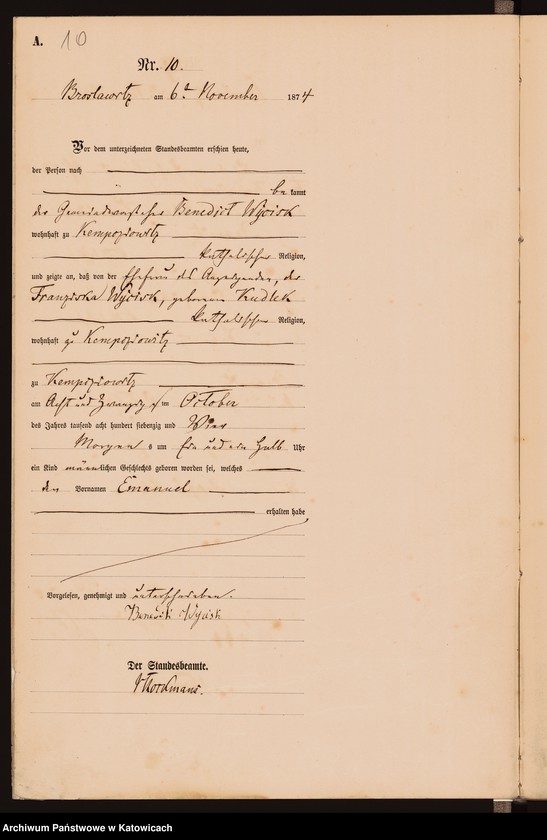 A. 10
Nr. 10.
Broslawitz am 6t November 1874
Vor dem unterzeichneten Standesbeamten erschien heute,
der Person nach
be kannt
der Gemeindevorsteher Benedict Wycisk
wohnhaft zu Kempczowitz
katholischer Religion,
und zeigte an, daß von der Ehefrau des Anzeigenden, der
Franziska Wycisk, geborenen Kudlek
katholischer Religion,
wohnhaft zu Kempczowitz
zu Kempczowitz
am Acht und Zwanzigsten October
des Jahres tausend acht hundert siebenzig und Vier
Morgens um Ein und ein Halb Uhr
ein Kind männlichen Geschlechts geboren worden sei, welches
den Vornamen Emanuel
erhalten habe
Vorgelesen, genehmigt und unterschrieben.
Benedikt Wycisk
Der Standesbeamte.
Archiwum Państwowe w Katowicach